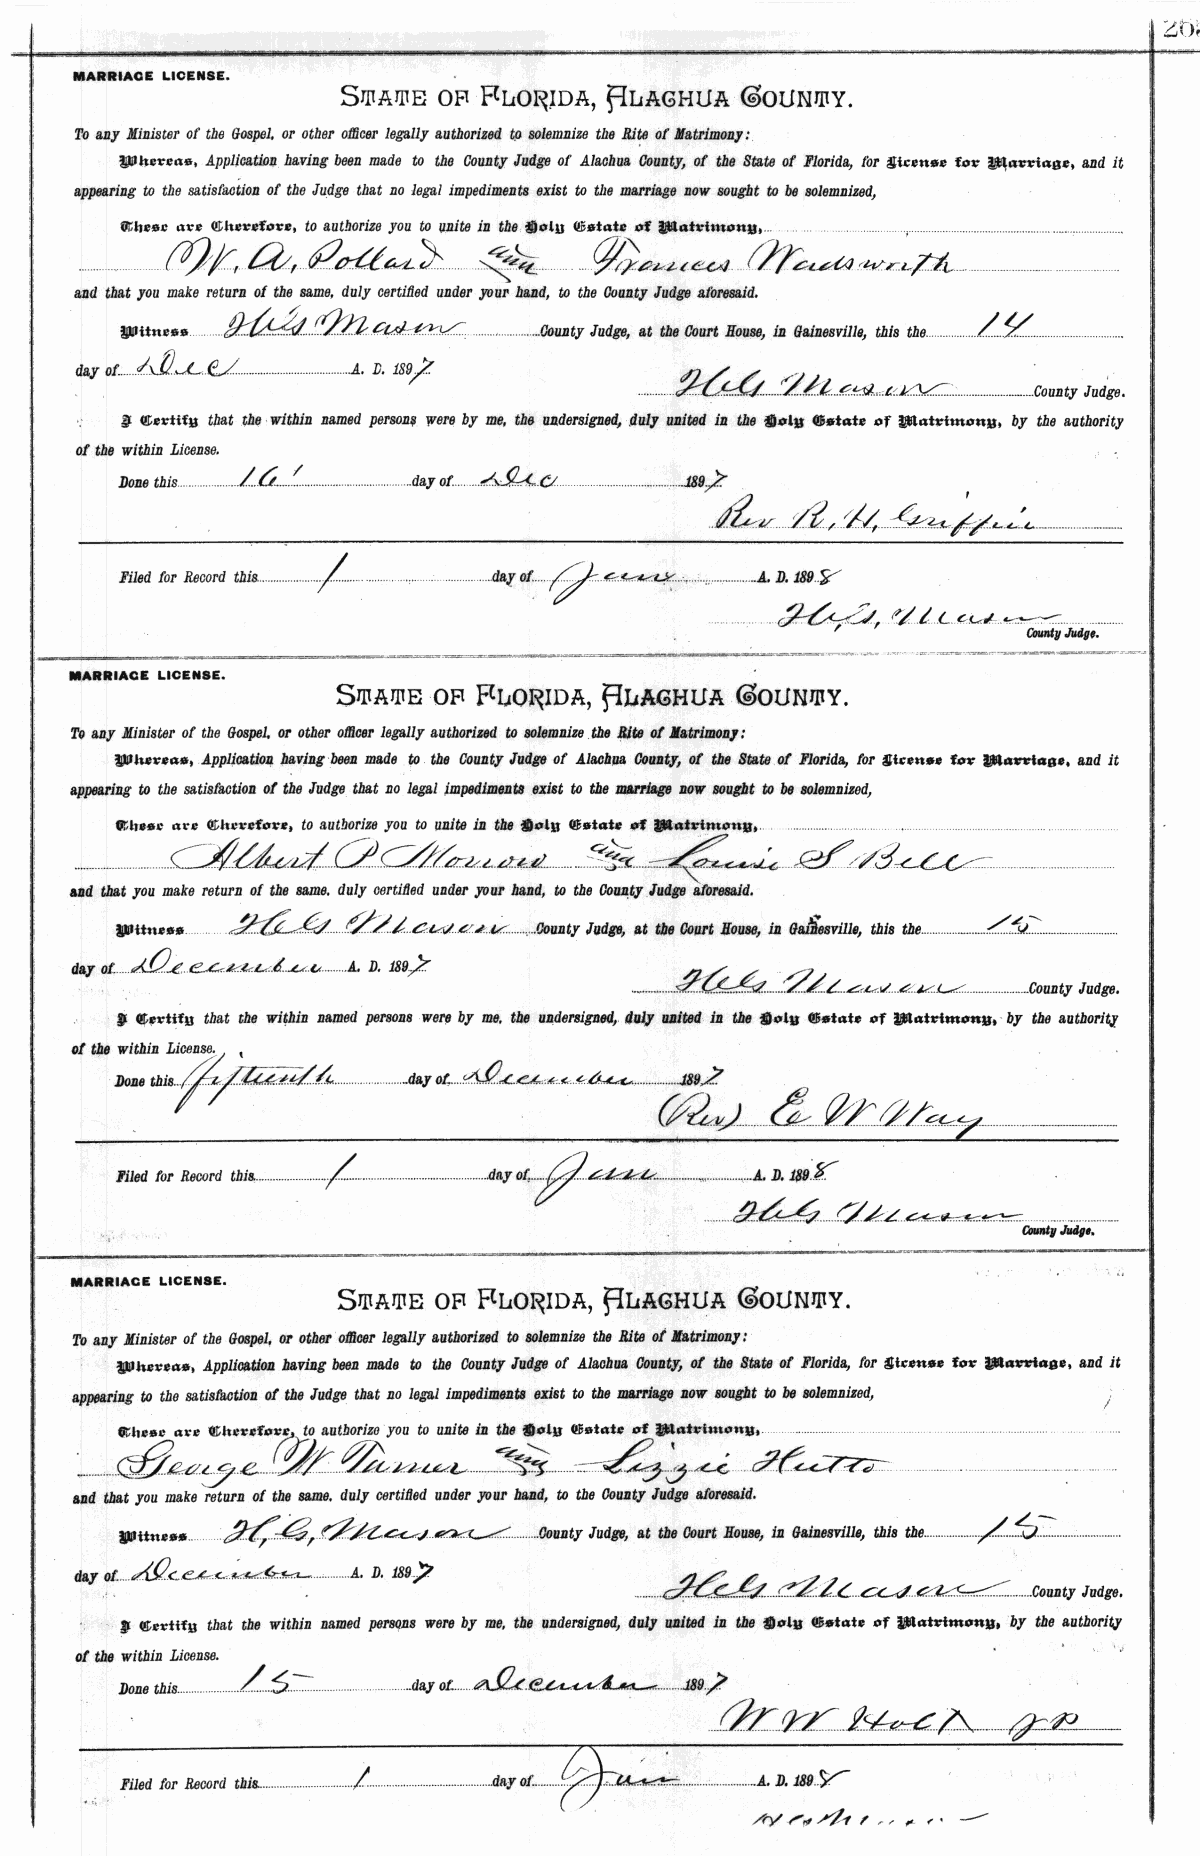 MARRIAGE LICENSE.
STATE OF FLORIDA, ALACHUA COUNTY.
To any Minister of the Gospel, or other officer legally authorized to solemnize the Rite of Matrimony:
Whereas, Application having been made to the County Judge of Alachua County, of the State of Florida, for License for Marriage, and it
appearing to the satisfaction of the Judge that no legal impediments exist to the marriage now sought to be solemnized,
These are Therefore, to authorize you to unite in the Holy Estate of Matrimony,
W. A. Pollard and Frances Wadsworth
and that you make return of the same, duly certified under your hand, to the County Judge aforesaid.
Witness H. G. Mason County Judge, at the Court House, in Gainesville, this the 14
day of Dec A. D. 1897
H. G. Mason County Judge.
I Certify that the within named persons were by me, the undersigned, duly united in the Holy Estate of Matrimony, by the authority
of the within License.
Done this 16 day of Dec 1897
Rev R. H. Griffin
Filed for Record this 1 day of Jan A. D. 1898
H. G. Mason
County Judge.
MARRIAGE LICENSE.
STATE OF FLORIDA, ALACHUA COUNTY.
To any Minister of the Gospel, or other officer legally authorized to solemnize the Rite of Matrimony:
Whereas, Application having been made to the County Judge of Alachua County, of the State of Florida, for License for Marriage, and it
appearing to the satisfaction of the Judge that no legal impediments exist to the marriage now sought to be solemnized,
These are Therefore, to authorize you to unite in the Holy Estate of Matrimony,
Albert P Morrow and Louise S Bell
and that you make return of the same, duly certified under your hand, to the County Judge aforesaid.
Witness H G Mason County Judge, at the Court House, in Gainesville, this the 15
day of December A. D. 1897
H G Mason County Judge.
I Certify that the within named persons were by me, the undersigned, duly united in the Holy Estate of Matrimony, by the authority
of the within License.
Done this fifteenth day of December 1897
(Rev) E W Way
Filed for Record this 1 day of Jan A. D. 1898
H G Mason
County Judge.
MARRIAGE LICENSE.
STATE OF FLORIDA, ALACHUA COUNTY.
To any Minister of the Gospel, or other officer legally authorized to solemnize the Rite of Matrimony:
Whereas, Application having been made to the County Judge of Alachua County, of the State of Florida, for License for Marriage, and it
appearing to the satisfaction of the Judge that no legal impediments exist to the marriage now sought to be solemnized,
These are Therefore, to authorize you to unite in the Holy Estate of Matrimony,
George W Turner and Lizzie Hutto
and that you make return of the same, duly certified under your hand, to the County Judge aforesaid.
Witness H. G. Mason County Judge, at the Court House, in Gainesville, this the 15
day of December A. D. 1897
H G Mason County Judge.
I Certify that the within named persons were by me, the undersigned, duly united in the Holy Estate of Matrimony, by the authority
of the within License.
Done this 15 day of December 1897
W W Holt JP
Filed for Record this 1 day of Jan A. D. 1898
H G Mason